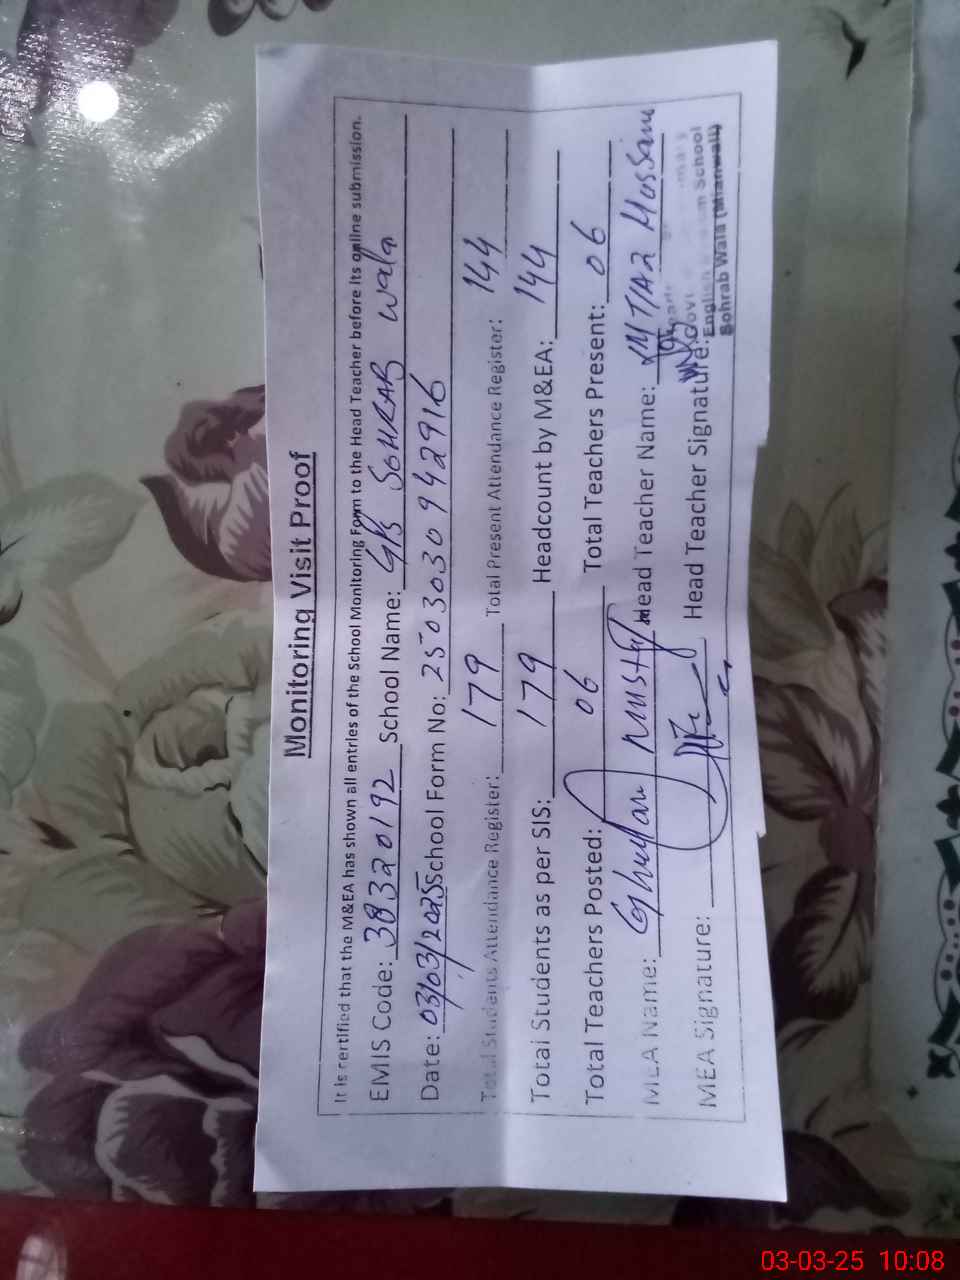 Monitoring Visit Proof
It is certified that the M&EA has shown all entries of the School Monitoring Form to the Head Teacher before its online submission.
EMIS Code: 38320192 School Name: GPS SOHRAB wala
Date: 03/03/2025 School Form No: 2503030942916
Total Students Attendance Register: 179 Total Present Attendance Register: 144
Total Students as per SIS: 179 Headcount by M&EA: 144
Total Teachers Posted: 06 Total Teachers Present: 06
MEA Name: Ghulam Mustafa Head Teacher Name: IMTIAZ HUSSAIN
MEA Signature: Head Teacher Signature:
Govt
English School
Sohrab Wala (Mianwali)
03-03-25 10:08